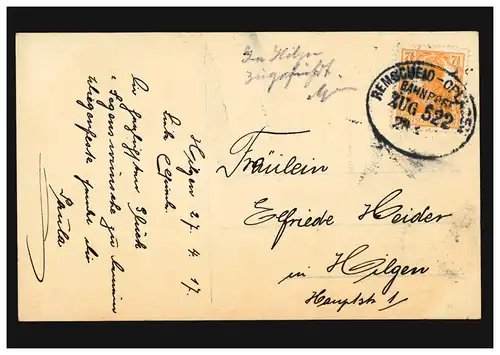 In Hilgen
zugespielt.
7½
REMSCHEID-OPLADEN
BAHNPOST
ZUG 522
Hilgen 27. 4. 17.
Die herzlichsten Glück
u. Segenswünsche zu Deinem
Wiegenfeste sendet Dir
Paula
Fräulein
Elfriede Heider
in Hilgen
Hauptstr 1